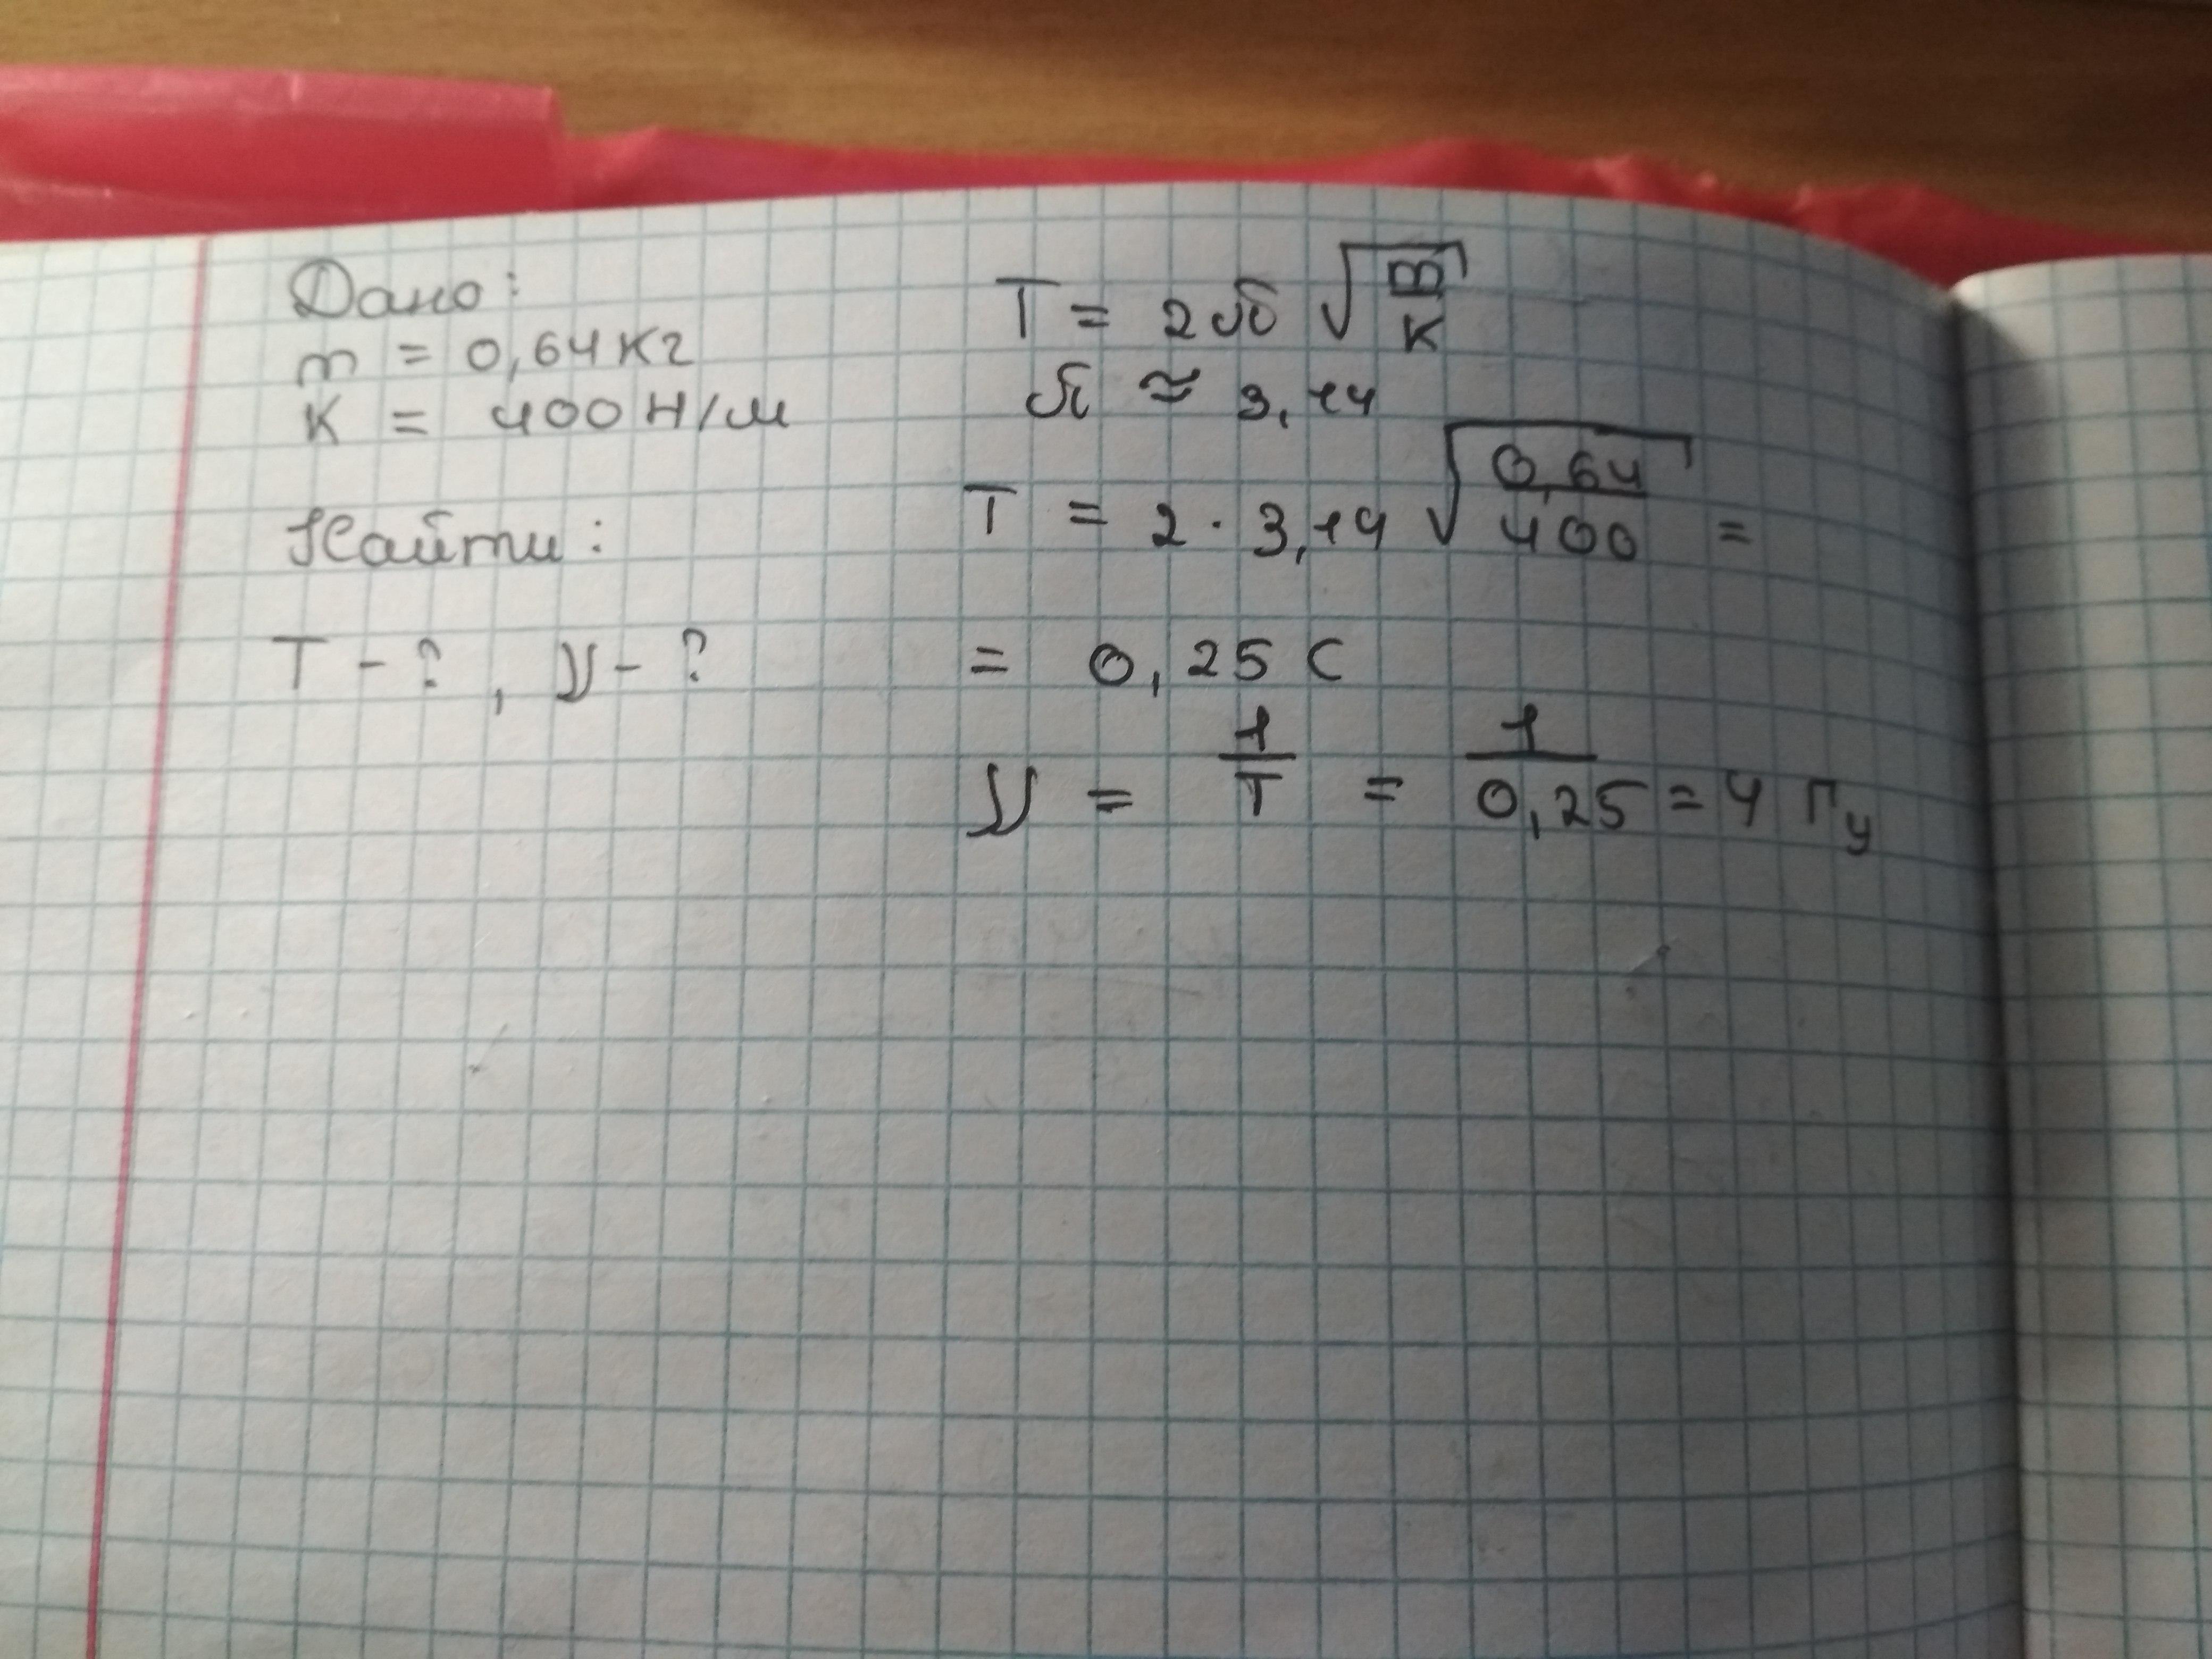 Дано:
m = 0,64 кг
K = 400 Н/м
Найти:
T - ? , ν - ?
T = 2π √(m/K)
π ≈ 3,14
T = 2 · 3,14 √(0,64/400) =
= 0,25 с
ν = 1/T = 1/0,25 = 4 Гц